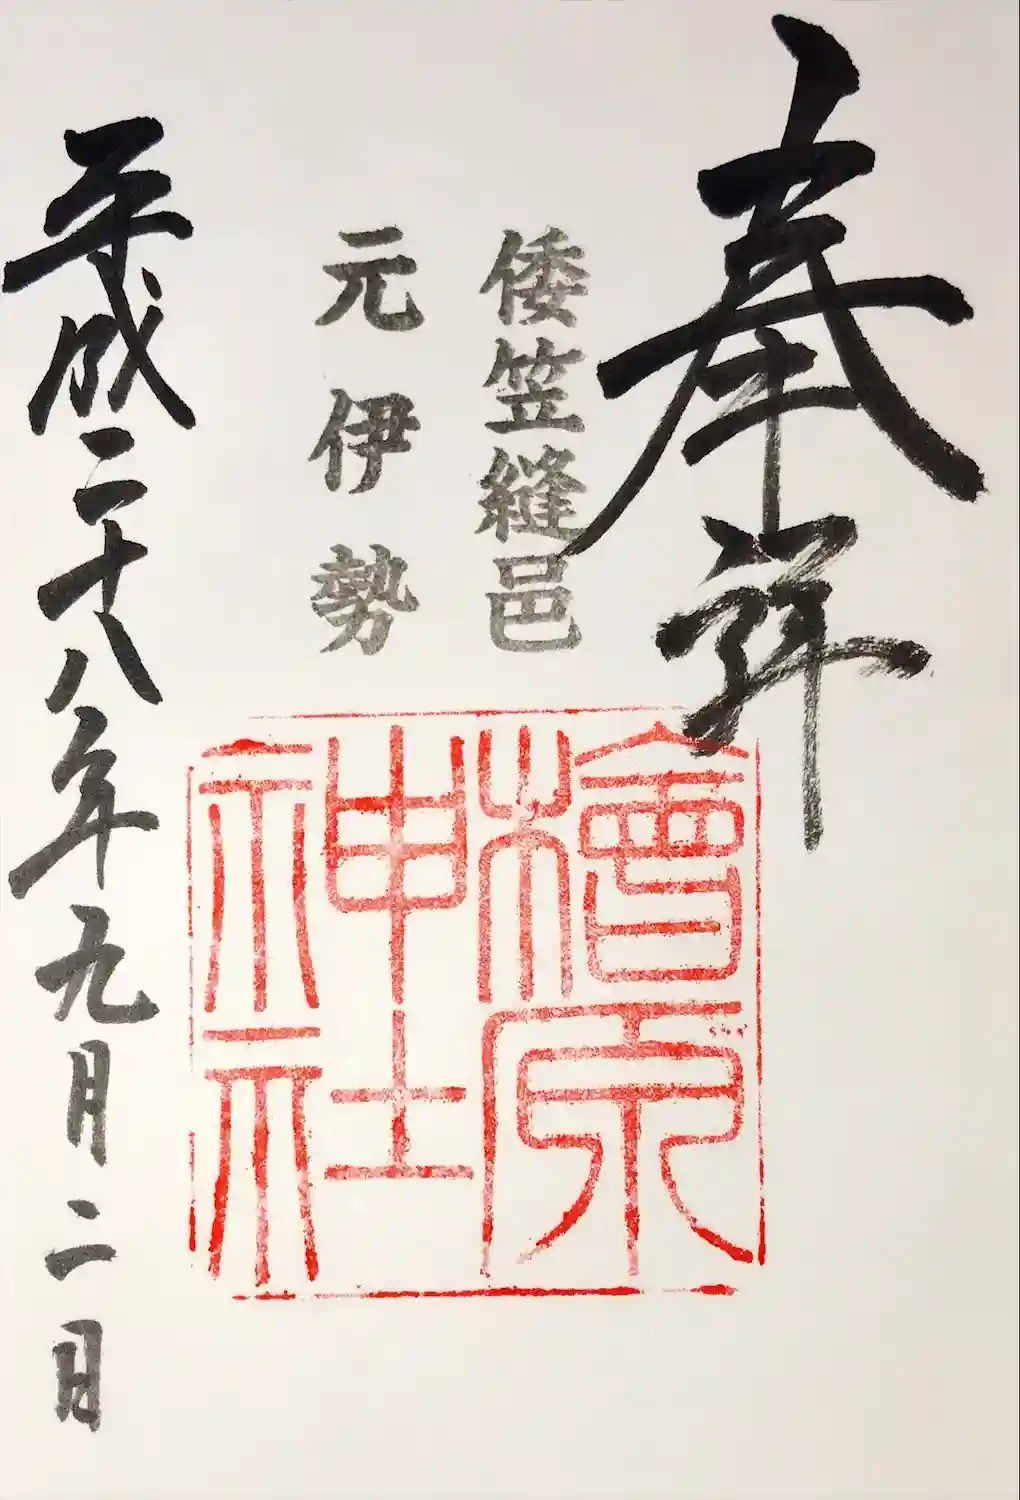 奉拝
倭笠縫邑
元伊勢
檜原
神社
平成二十八年九月二日